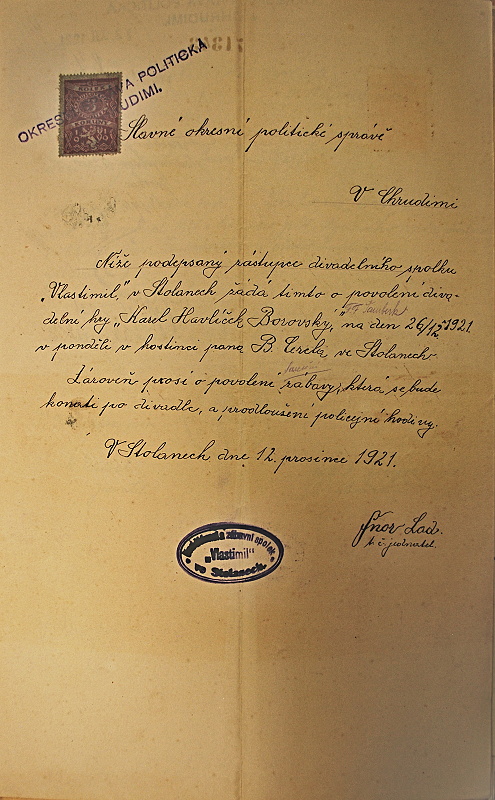 OKRES A POLITICKÁ
UDIMI.
KOLEK
Slavné okresní politické správě
V Chrudimi
Níže podepsaný zástupce divadelního spolku
„Vlastimil", v Stolanech žádá tímto o povolení diva-
delní hry „Karel Havlíček Borovský, na den 26/12 1921
v pondělí v hostinci pana B. ve Stolanech.
Zároveň prosí o povolení zábavy, která se bude
konati po divadle, a prodloušení policejní hodiny.
V Stolanech dne 12. prosince 1921.
Šnor Lad.
t. č. jednatel.
a zábavní spolek
„Vlastimil"
ve Stolanech.